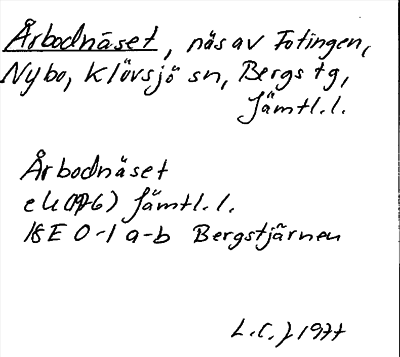 Årbodnäset, näs av Fotingen,
Nybo, Klövsjö sn, Bergs tg,
Jämtl.l.
Årbodnäset
ek (1976) Jämtl.l.
18E 0-1 a-b Bergstjärnen
L.C. 1977